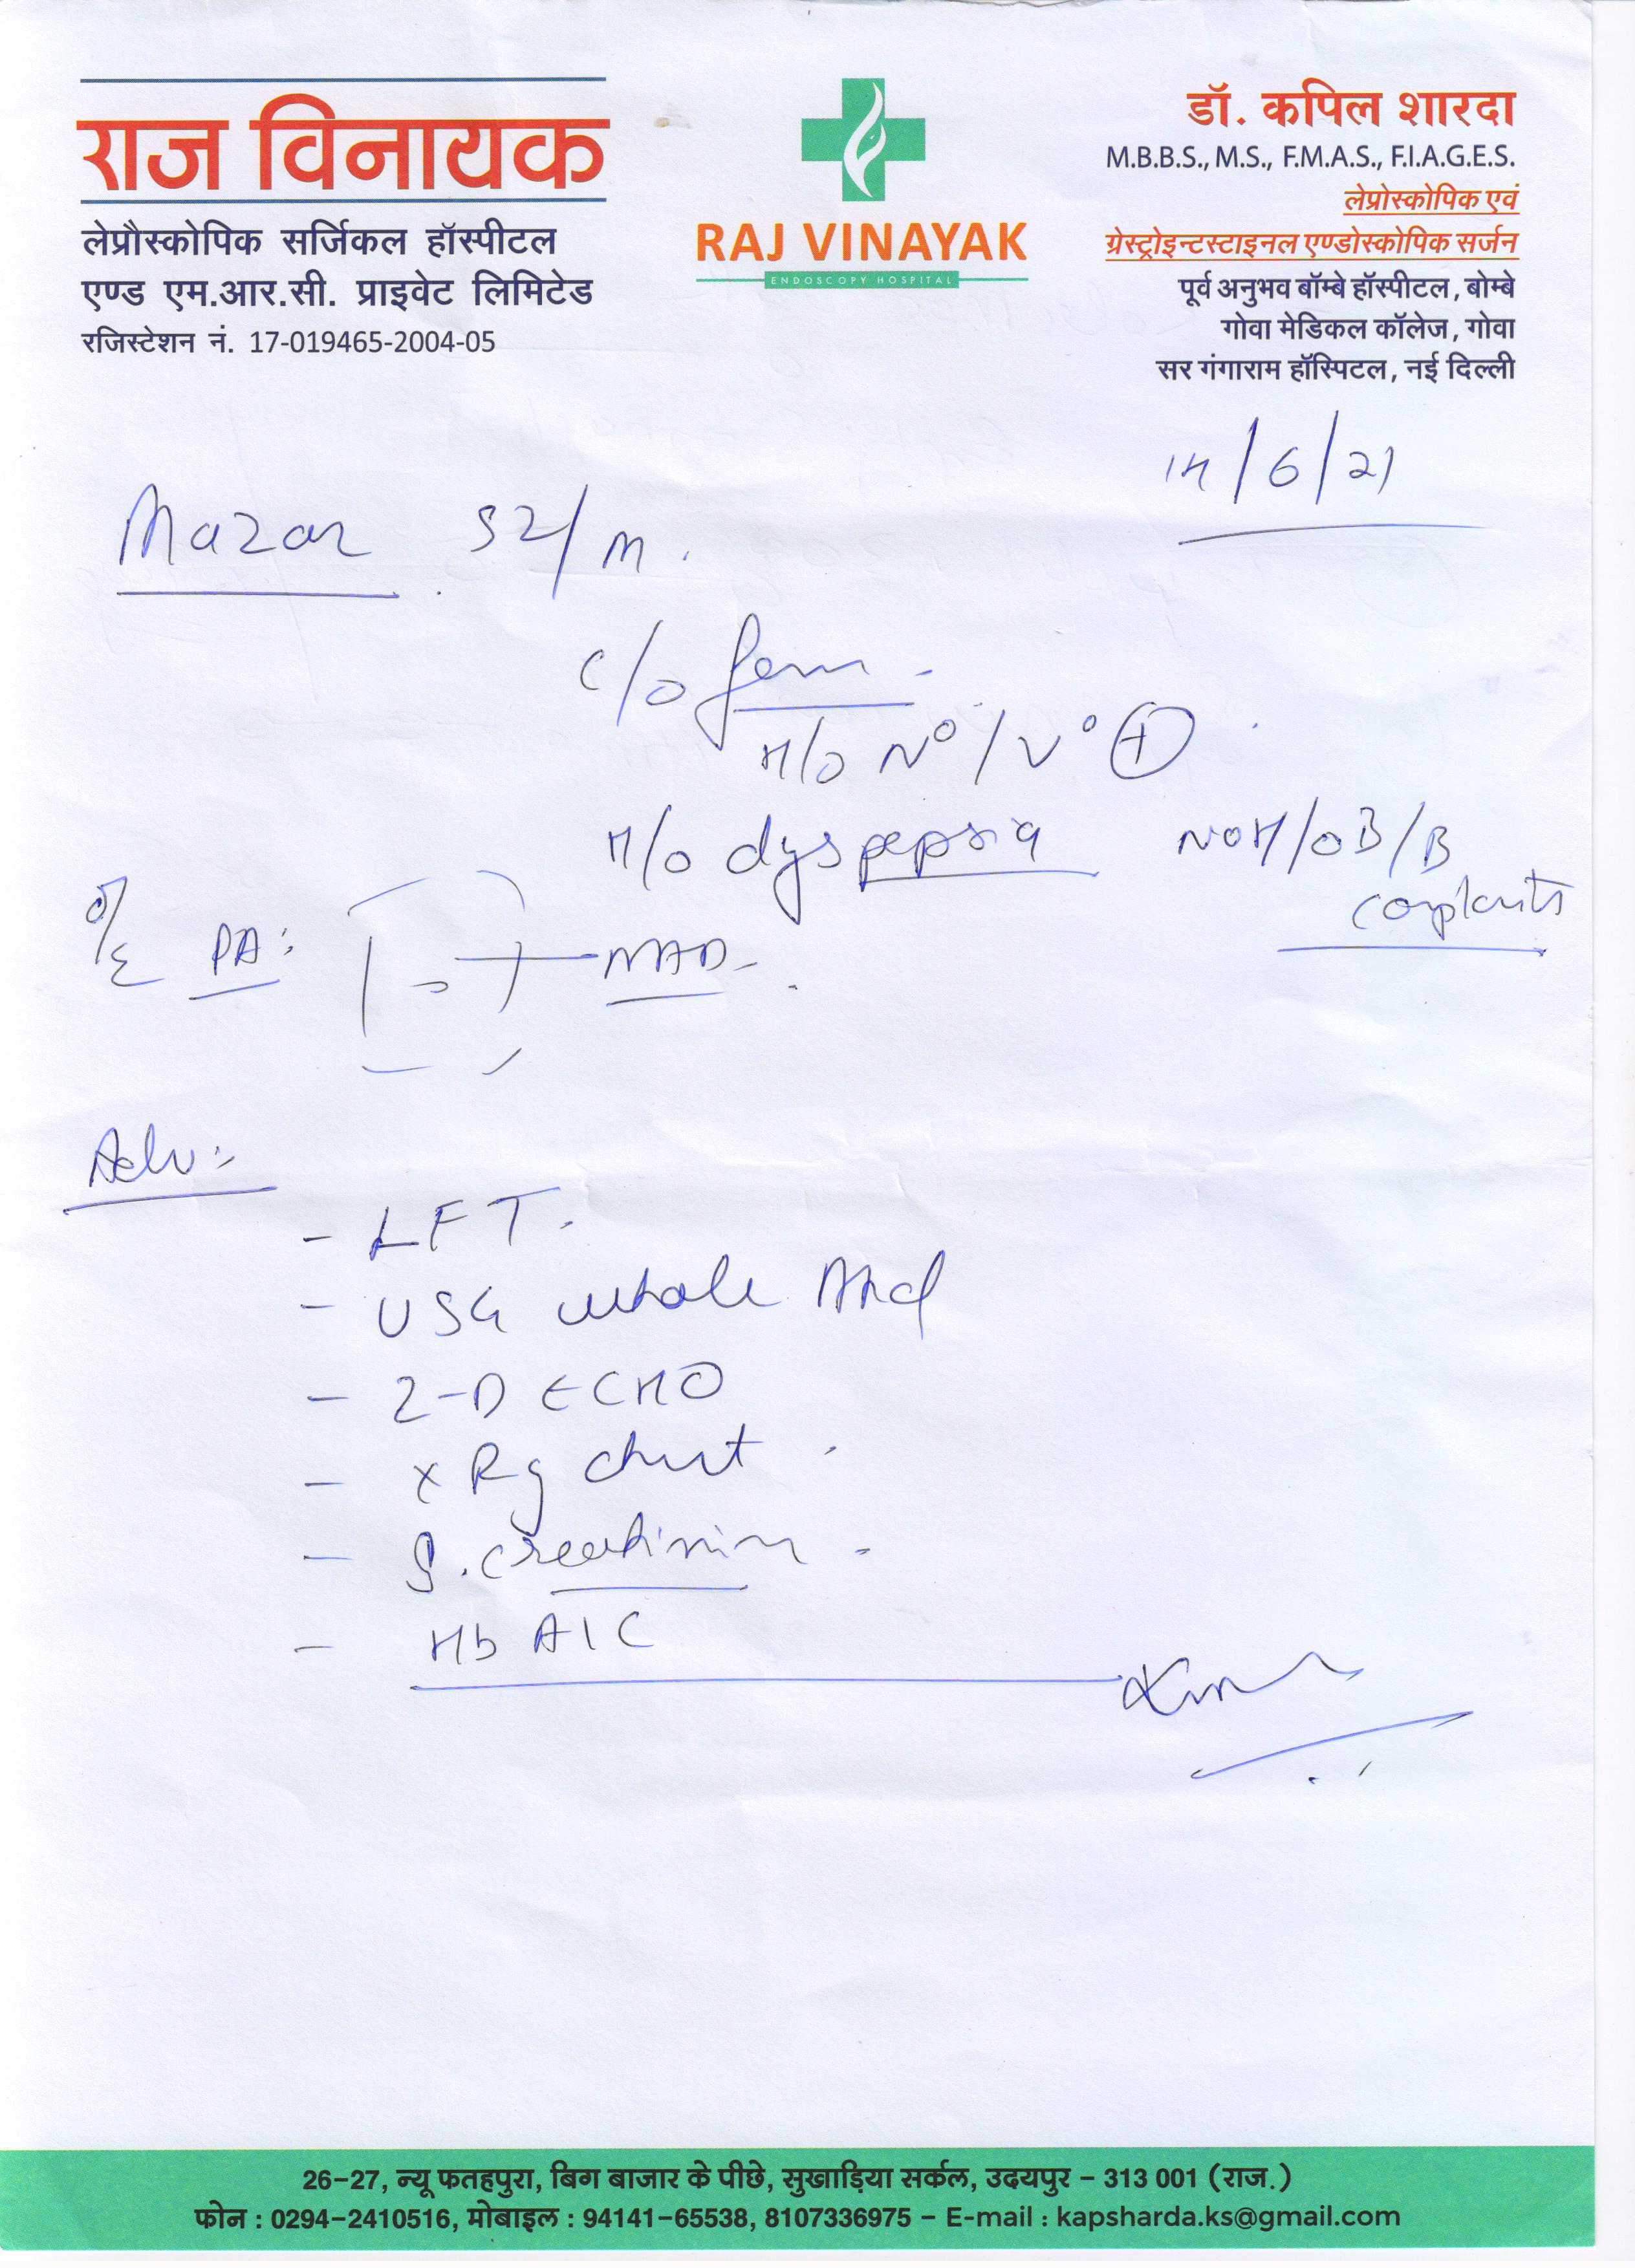 राज विनायक
लेप्रौस्कोपिक सर्जिकल हॉस्पीटल
एण्ड एम.आर.सी. प्राइवेट लिमिटेड
रजिस्टेशन नं. 17-019465-2004-05
RAJ VINAYAK
ENDOSCOPY HOSPITAL
डॉ. कपिल शारदा
M.B.B.S., M.S., F.M.A.S., F.I.A.G.E.S.
लेप्रोस्कोपिक एवं
ग्रेस्ट्रोइन्टस्टाइनल एण्डोस्कोपिक सर्जन
पूर्व अनुभव बॉम्बे हॉस्पीटल, बोम्बे
गोवा मेडिकल कॉलेज, गोवा
सर गंगाराम हॉस्पिटल, नई दिल्ली
14/6/21
Mazar 52/M.
C/o
H/o N°/V° (+)
H/o dyspepsia No H/o B/B
complaints
O/E PA:
Adv:-
- LFT.
- USG whole Abd
- 2-D ECHO
- X Ray chest
- S. creatinine
- HbA1C
26-27, न्यू फतहपुरा, बिग बाजार के पीछे, सुखाड़िया सर्कल, उदयपुर - 313 001 (राज.)
फोन : 0294-2410516, मोबाइल : 94141-65538, 8107336975 - E-mail : kapsharda.ks@gmail.com